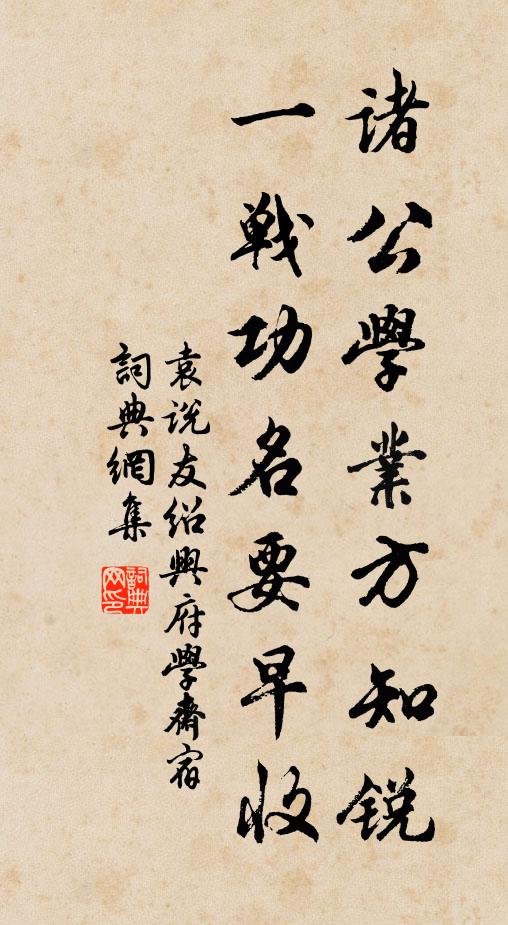 諸公學業方知銳
一戰功名要早收
袁说友绍興府學齋宿
詞典網集
詞典網印